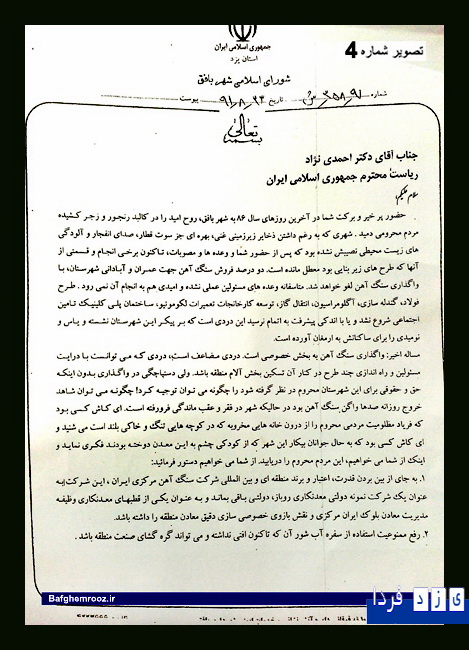 تصویر شماره 4
جمهوری اسلامی ایران
استان یزد
شورای اسلامی شهر بافق
شماره
تاریخ ۹۱/۸/۲۳ پیوست
بسمه تعالی
جناب آقای دکتر احمدی نژاد
ریاست محترم جمهوری اسلامی ایران
سلام علیکم:
حضور پر خیر و برکت شما در آخرین روزهای سال ۸۶ به شهر بافق، روح امید را در کالبد رنجور و زجر کشیده
مردم محرومی دمید . شهری که به رغم داشتن ذخایر زیرزمینی غنی، بهره ای جز سوت قطار، صدای انفجار و آلودگی
های زیست محیطی نصیبش نشده بود که پس از حضور شما و وعده ها و مصوبات، تاکنون برخی انجام و قسمتی از
آنها که طرح های زیر بنایی بود معطل مانده است. دو درصد فروش سنگ آهن جهت عمران و آبادانی شهرستان، با
واگذاری سنگ آهن لغو خواهد شد. متاسفانه وعده های مسئولین عملی نشده و امیدی هم به انجام آن نمی رود . طرح
فولاد، گندله سازی، آگلومراسیون، انتقال گاز، توسعه کارخانجات تعمیرات لکوموتیو، ساختمان پلی کلینیک تامین
اجتماعی شروع نشد و یا با اندکی پیشرفت به اتمام نرسید این دردی است که بر پیکر این شهرستان نشسته و یاس و
نومیدی را برای ساکنانش به ارمغان آورده است.
مساله اخیر: واگذاری سنگ آهن به بخش خصوصی است. دردی مضاعف است، دردی که می توانست با درایت
مسئولین و راه اندازی چند طرح در کنار آن تسکین بخش آلام منطقه باشد. ولی دستپاچگی در واگذاری بدون اینکه
حق و حقوقی برای این شهرستان محروم در نظر گرفته شود را چگونه می توان توجیه کرد! چگونه می توان شاهد
خروج روزانه صدها واگن سنگ آهن بود در حالیکه شهر در فقر و عقب ماندگی فرورفته است. ای کاش کسی بود
که فریاد مظلومیت مردمی محروم را از درون خانه هایی مخروبه که در کوچه هایی تنگ و خاکی بلند است می شنید و
ای کاش کسی بود که به حال جوانان بیکار این شهر که از کودکی چشم به این معدن دوخته بودند فکری نماید و
اینک از شما می خواهیم، این مردم محروم را دریابید. از شما می خواهیم دستور فرمائید:
۱. به جای از بین بردن قدرت، اعتبار و برند منطقه ای و بین المللی شرکت سنگ آهن مرکزی ایران ، این شرکت به
عنوان یک شرکت نمونه دولتی معدنکاری روباز، دولتی باقی بماند و به عنوان یکی از قطبهای معدنکاری وظیفه
مدیریت معادن بلوک ایران مرکزی و نقش بازوی خصوصی سازی دقیق معادن منطقه را داشته باشد.
۲. رفع ممنوعیت استفاده از سفره آب شور آن که تاکنون افنی نداشته و می تواند گره گشای صنعت منطقه باشد .
Bafghemrooz.ir
یزد فردا